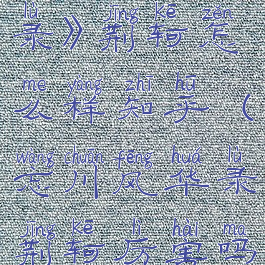 lù jīng kē zěn
录》荆轲怎
me yàng zhī hū
么样知乎(
wàng chuān fēng huá lù
忘川风华录
jīng kē lì hài ma
荆轲厉害吗